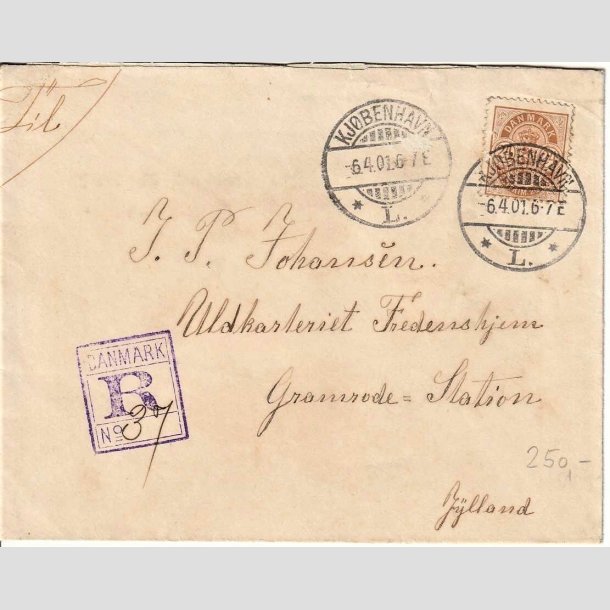 Til
KJØBENHAVN
-6.4.01.6-7E
* L. *
DANMARK
KJØBENHAVN
-6.4.01.6-7E
* L. *
J. P. Johansén.
Uldkarteriet Fredenshjem
Gramrode = Station
Jylland
DANMARK
R
No 37
250,-